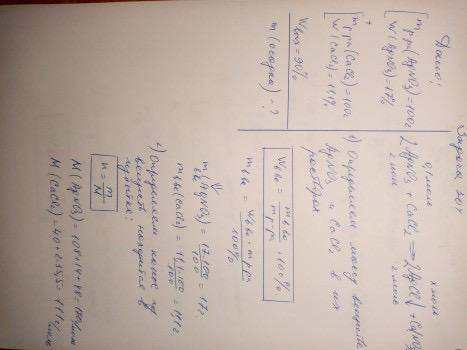 Задача 201
Дано:
m р-ра(AgNO₃)=100г
W(AgNO₃)=17%
+
m р-ра(CaCl₂)=100г
W(CaCl₂)=11,1%
Wвых=90%
m(осадка) - ?
0,1 моль х моль
2AgNO₃ + CaCl₂ → 2AgCl↓ + Ca(NO₃)₂
2 моль 2 моль
1) Определяем массу веществ
AgNO₃ и CaCl₂ в их
растворах
Wв-ва = mв-ва / mр-ра · 100%
mв-ва = Wв-ва · mр-ра / 100%
mв-ва(AgNO₃) = 17·100/100 = 17г
mв-ва(CaCl₂) = 11,1·100/100 = 11,1г
2) Определяем какое из
веществ находится в
избытке:
n = m/M
M(AgNO₃)=108+14+48=170г/моль
M(CaCl₂)=40+2·35,5=111г/моль